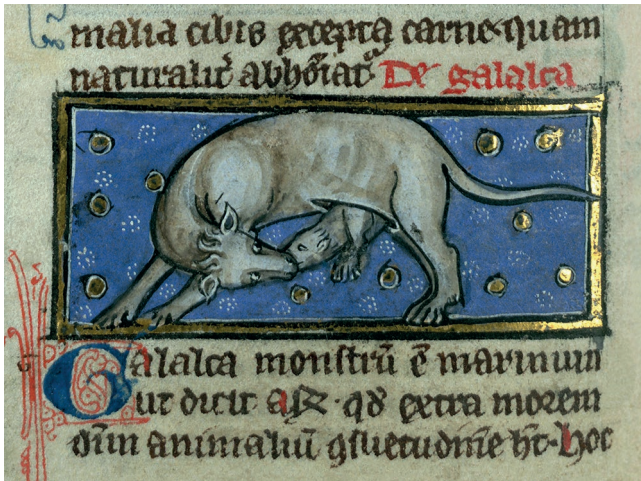 malia cibis excepta carne·quam
naturalit᷑ abhoīat᷑ De galalca
Galalca monstrū ē marinum
ut dicit qd extra morem
oīm animaliū ꝯsuetudinē ht·hoc